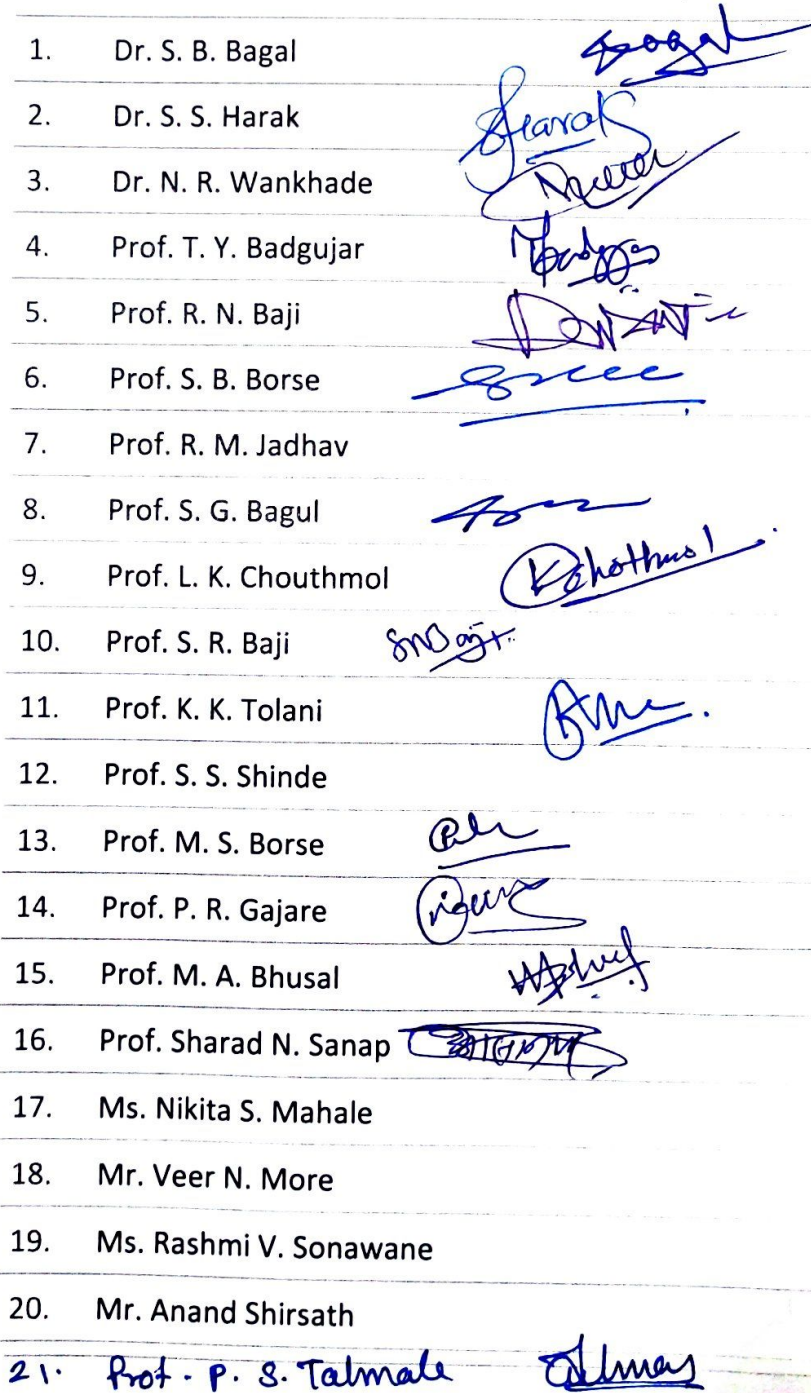 1. Dr. S. B. Bagal Bagal
2. Dr. S. S. Harak SHarak
3. Dr. N. R. Wankhade
4. Prof. T. Y. Badgujar
5. Prof. R. N. Baji
6. Prof. S. B. Borse
7. Prof. R. M. Jadhav
8. Prof. S. G. Bagul
9. Prof. L. K. Chouthmol
10. Prof. S. R. Baji
11. Prof. K. K. Tolani
12. Prof. S. S. Shinde
13. Prof. M. S. Borse
14. Prof. P. R. Gajare
15. Prof. M. A. Bhusal
16. Prof. Sharad N. Sanap
17. Ms. Nikita S. Mahale
18. Mr. Veer N. More
19. Ms. Rashmi V. Sonawane
20. Mr. Anand Shirsath
21. Prof. P. S. Talmale